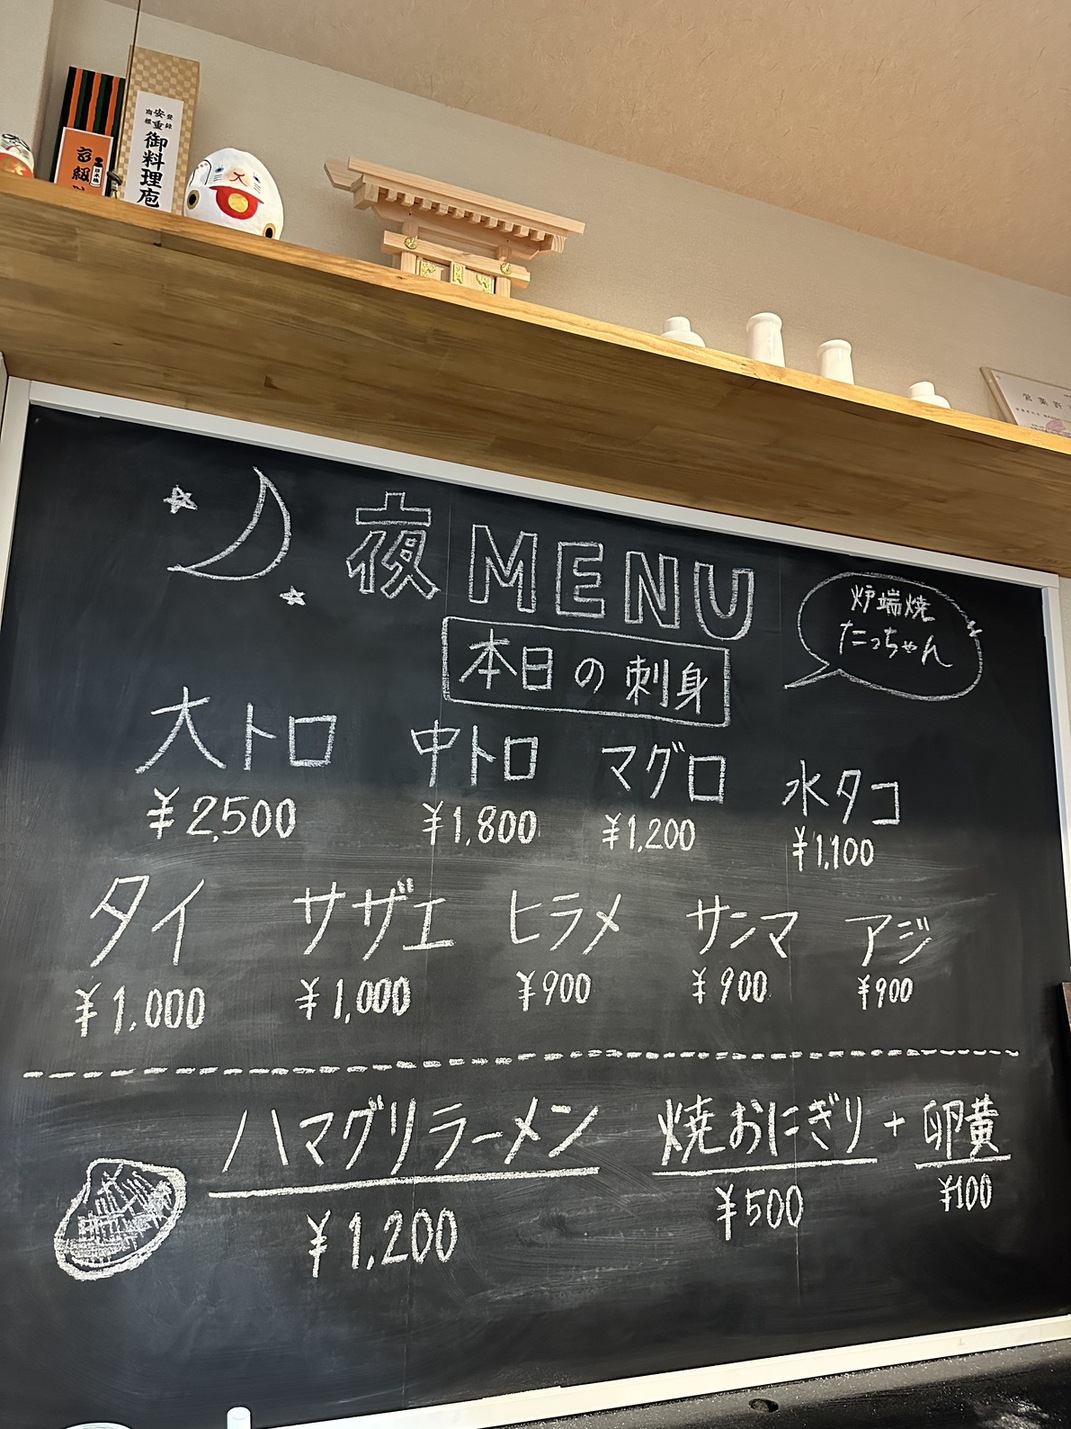 登録
安重
商標
御料理庖
夜 MENU
炉端焼
たっちゃん
本日の刺身
大トロ 中トロ マグロ 水タコ
¥2,500 ¥1,800 ¥1,200 ¥1,100
タイ サザエ ヒラメ サンマ アジ
¥1,000 ¥1,000 ¥900 ¥900 ¥900
ハマグリラーメン 焼おにぎり + 卵黄
¥1,200 ¥500 ¥100